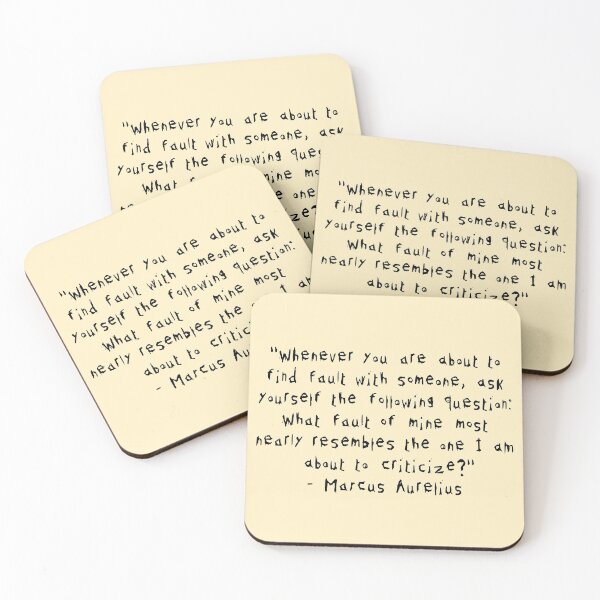 "Whenever you are about to
find fault with someone, ask
yourself the following
What mine
the one
"Whenever you are about to
find fault with someone, ask
yourself the following question:
What fault of mine most
nearly resembles the one I am
about to criticize?"
"Whenever you are about to
find fault with someone, ask
yourself the following question:
What fault of mine most
nearly resembles the one I
about to
- Marcus
"Whenever you are about to
find fault with someone, ask
yourself the following question:
What fault of mine most
nearly resembles the one I am
about to criticize?"
- Marcus Aurelius